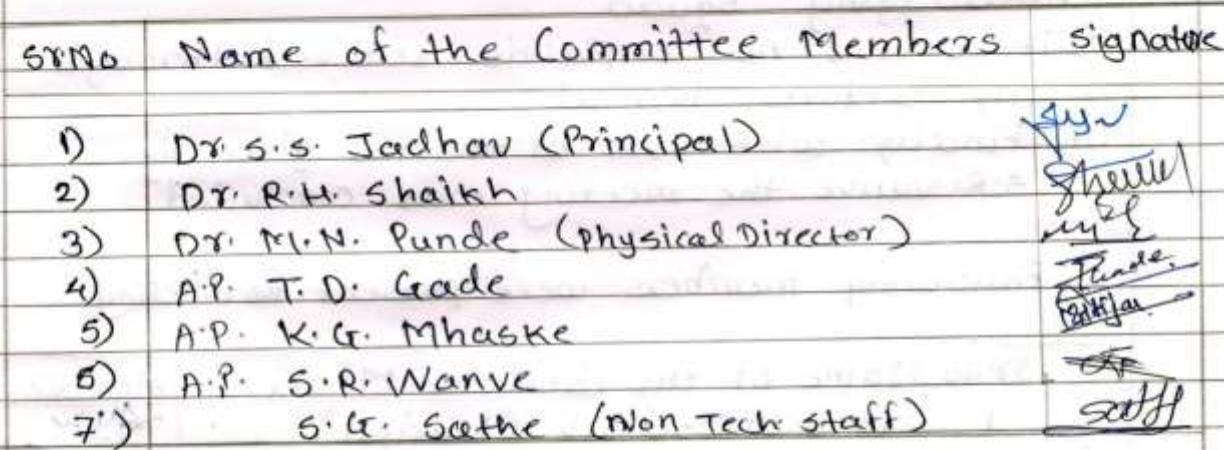 Sr.No Name of the Committee Members Signature
1) Dr. S.S. Jadhav (Principal)
2) Dr. R.H. Shaikh
3) Dr. M.N. Punde (Physical Director)
4) A.P. T.D. Gade
5) A.P. K.G. Mhaske
6) A.P. S.R. Wanve
7) S.G. Sathe (Non Tech staff)